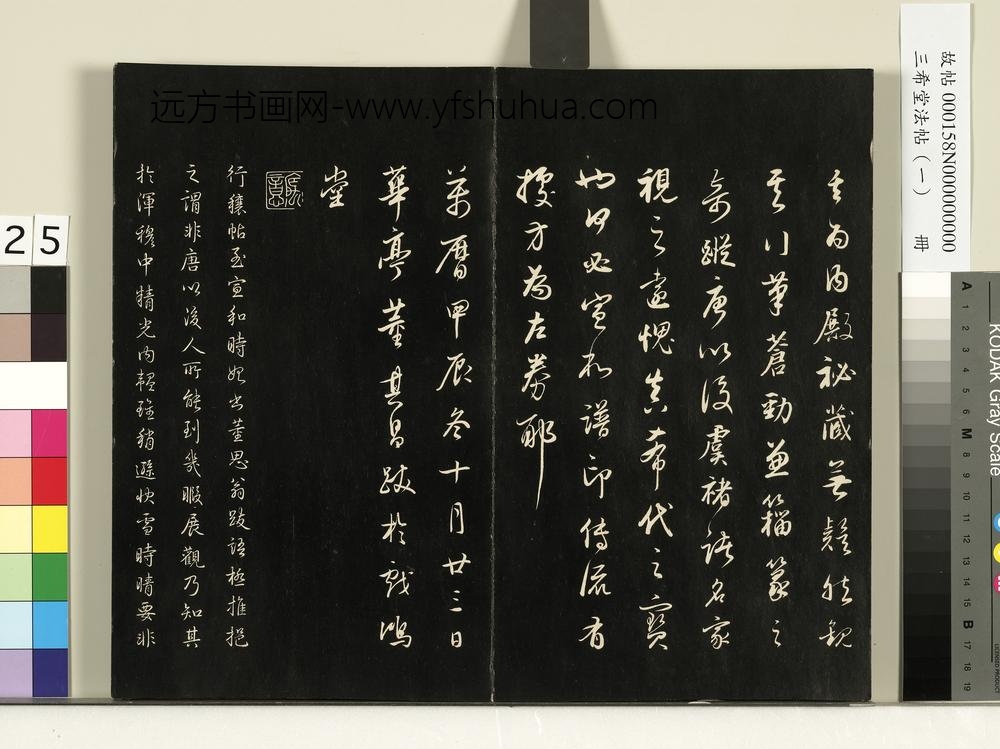 其為內殿祕藏無疑然觀
其行筆蒼勁兼籀篆之
奇蹤唐以後虞褚諸名家
視之遠愧真希代之寶
也何必宣和譜印傳流有
據方為左券耶
萬曆甲辰冬十月廿三日
華亭董其昌跋於戲鴻
堂
行穰帖至宣和時始出董思翁跋語極推挹
之謂非唐以後人所能到幾暇展觀乃知其
於渾穆中精光內韞雖稍遜快雪時晴要非
远方书画网-www.yfshuhua.com
故帖 000158N000000000
三希堂法帖（一） 冊
25
KODAK Gray Scale
A 1 2 3 4 5 6 M 8 9 10 11 12 13 14 15 B 17 18 19